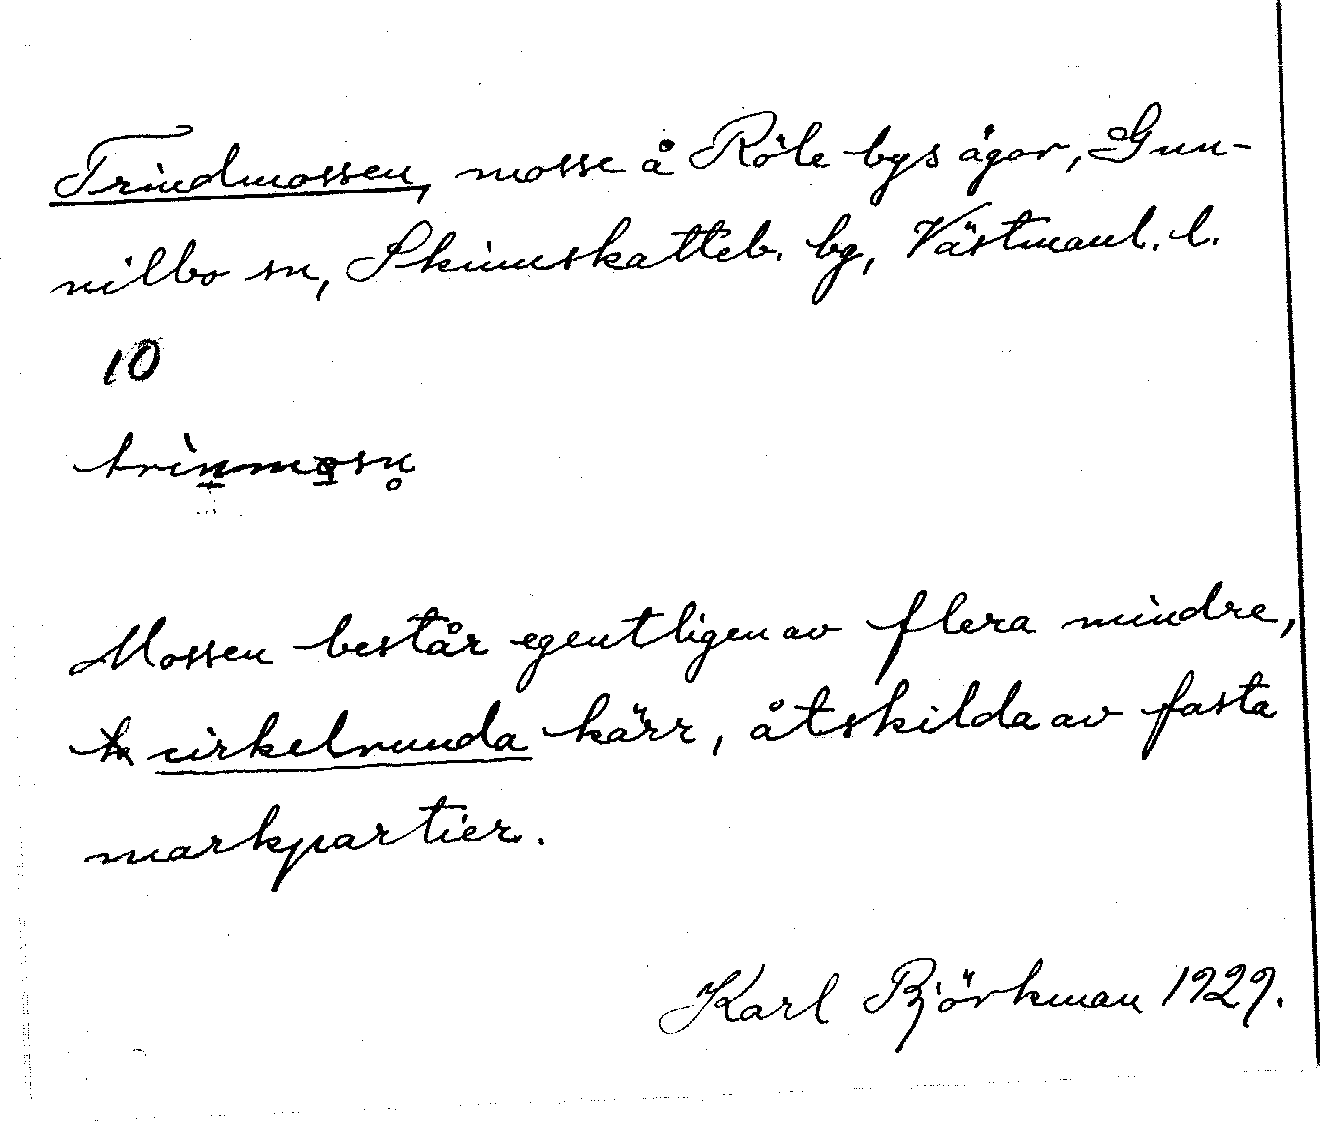 Trindmossen, mosse å Röle bys ägor, Gun-
nilbo sn, Skinnskatteb. bg, Västmanl. l.
10
trinmosn̥
Mossen består egentligen av flera mindre,
cirkelrunda kärr, åtskilda av fasta
markpartier.
Karl Björkman 1929.